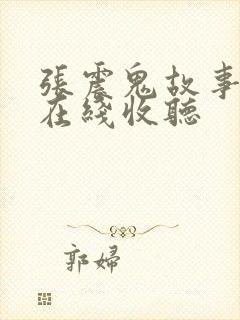 張震鬼故事
在綫收聽
郭婦